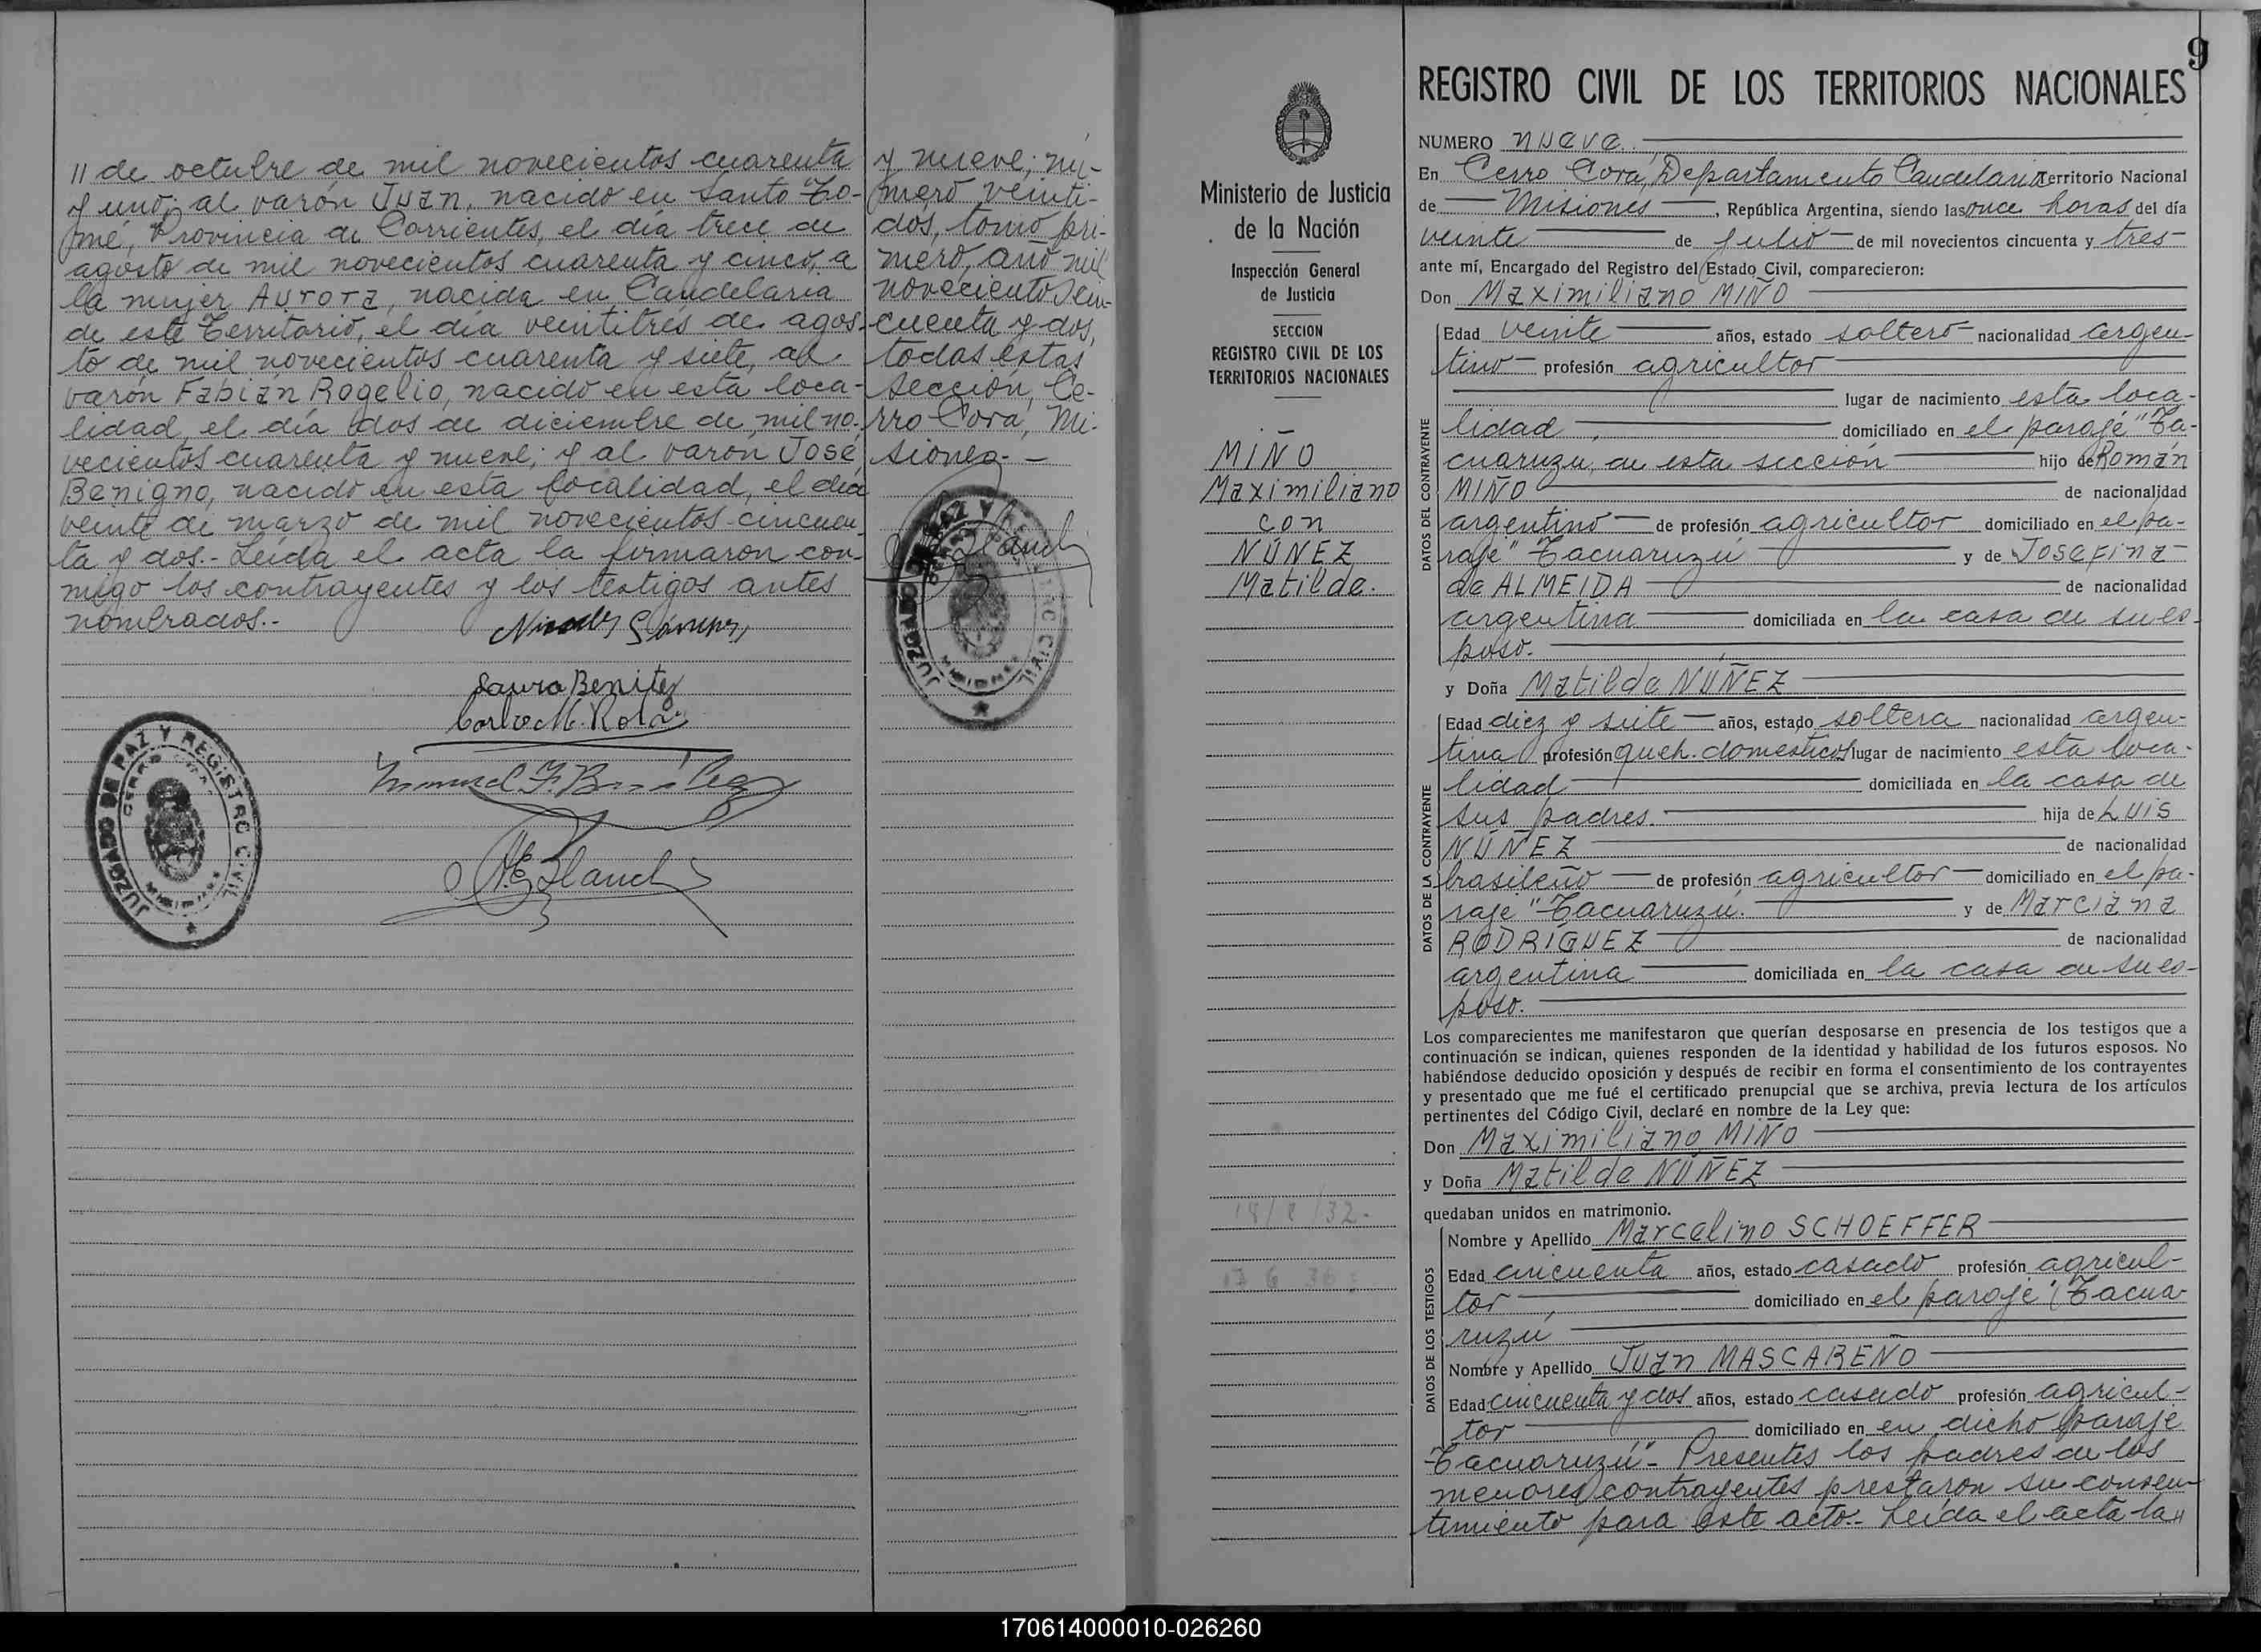 11 de octubre de mil novecientos cuarenta
y uno; al varón Juan, nacido en Santo To-
mé, Provincia de Corrientes, el día trece de
agosto de mil novecientos cuarenta y cinco, a
la mujer Aurora, nacida en Candelaria
de este Territorio, el día veintitrés de agos-
to de mil novecientos cuarenta y siete, al
varón Fabián Rogelio, nacido en esta loca-
lidad, el día dos de diciembre de mil no-
vecientos cuarenta y nueve; y al varón José
Benigno, nacido en esta localidad, el día
veinte de marzo de mil novecientos cincuen
ta y dos.- Leída el acta la firmaron con-
migo los contrayentes y los testigos antes
nombrados.-
Laura Benitez
Carlos M. Rola
JUZGADO DE PAZ Y REGISTRO CIVIL
CERRO CORA
MISIONES
y nueve; nú-
mero veinti-
dos, tomo pri-
mero, año mil
novecientos cin-
cuenta y dos,
todas estas
sección, Ce-
rro Corá, Mi-
siones.-
JUZGADO DE PAZ Y REGISTRO CIVIL
MISIONES
Ministerio de Justicia
de la Nación
Inspección General
de Justicia
SECCION
REGISTRO CIVIL DE LOS
TERRITORIOS NACIONALES
MIÑO
Maximiliano
con
NÚÑEZ
Matilde.
9
REGISTRO CIVIL DE LOS TERRITORIOS NACIONALES
NUMERO nueve.
En Cerro Corá, Departamento Candelaria Territorio Nacional
de Misiones, República Argentina, siendo las once horas del día
veinte de julio de mil novecientos cincuenta y tres
ante mí, Encargado del Registro del Estado Civil, comparecieron:
Don Maximiliano MIÑO
DATOS DEL CONTRAYENTE
Edad veinte años, estado soltero nacionalidad argen-
tino profesión agricultor
lugar de nacimiento esta loca-
lidad, domiciliado en el paraje "Ta-
cuaruzu, de esta sección hijo de Román
MIÑO de nacionalidad
argentino de profesión agricultor domiciliado en el pa-
raje "Tacuaruzú y de Josefina
de ALMEIDA de nacionalidad
argentina domiciliada en la casa de su es-
poso.
y Doña Matilde NÚÑEZ
DATOS DE LA CONTRAYENTE
Edad diez y siete años, estado soltera nacionalidad argen-
tina profesión queh. domésticos lugar de nacimiento esta loca-
lidad domiciliada en la casa de
sus padres. hija de Luis
NÚÑEZ de nacionalidad
brasileño de profesión agricultor domiciliado en el pa-
raje "Tacuaruzú. y de Marciana
RODRÍGUEZ de nacionalidad
argentina domiciliada en la casa de su es-
poso.
Los comparecientes me manifestaron que querían desposarse en presencia de los testigos que a
continuación se indican, quienes responden de la identidad y habilidad de los futuros esposos. No
habiéndose deducido oposición y después de recibir en forma el consentimiento de los contrayentes
y presentado que me fué el certificado prenupcial que se archiva, previa lectura de los artículos
pertinentes del Código Civil, declaré en nombre de la Ley que:
Don Maximiliano MIÑO
y Doña Matilde NÚÑEZ
quedaban unidos en matrimonio.
DATOS DE LOS TESTIGOS
Nombre y Apellido Marcelino SCHOEFFER
Edad cincuenta años, estado casado profesión agricul-
tor, domiciliado en el paraje "Tacua-
ruzú
Nombre y Apellido Juan MASCAREÑO
Edad cincuenta y dos años, estado casado profesión agricul-
tor domiciliado en en dicho paraje
Tacuaruzú"- Presentes los padres de los
menores contrayentes prestaron su consen-
timiento para este acto.- Leída el acta la,,
170614000010-026260